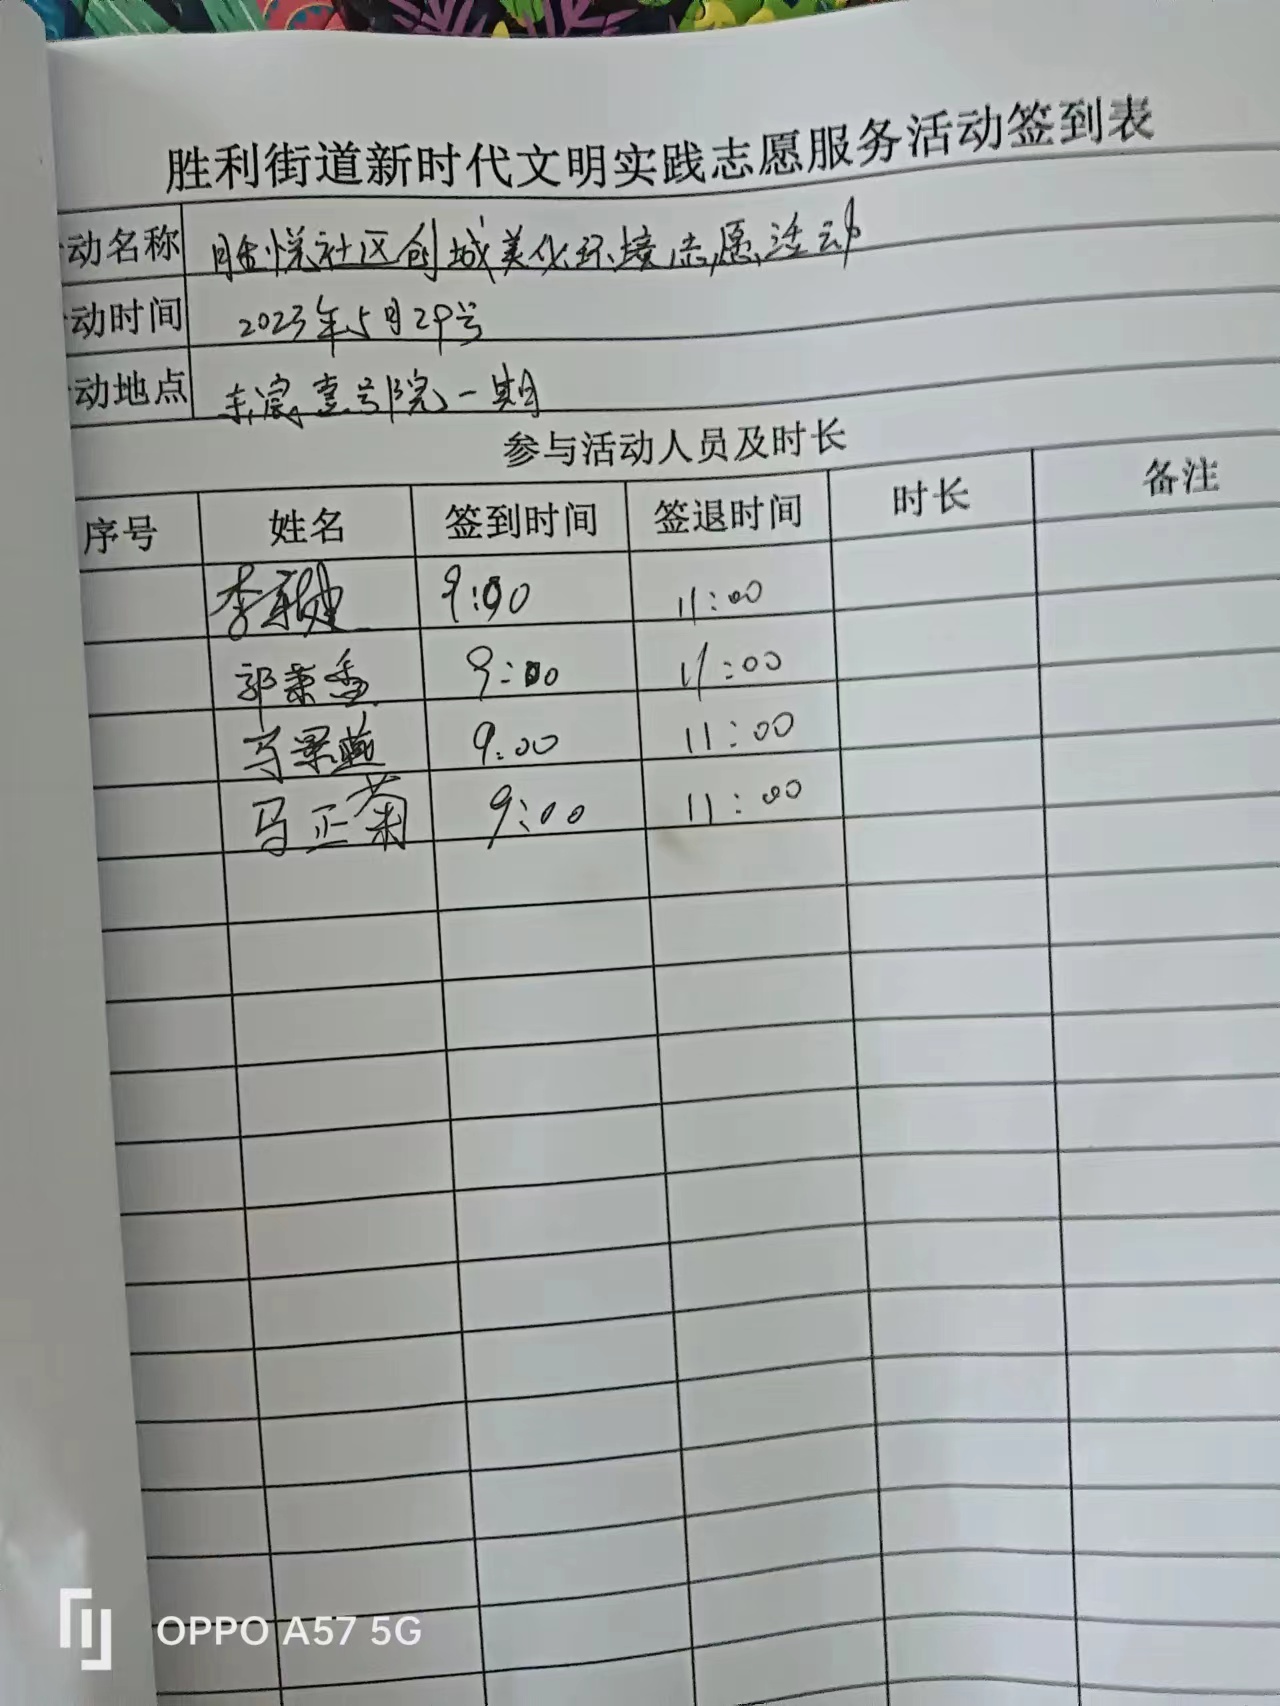 胜利街道新时代文明实践志愿服务活动签到表
动名称 胜悦社区创城美化环境志愿活动
动时间 2023年5月29号
动地点 东宸壹号院一期
参与活动人员及时长
序号 姓名 签到时间 签退时间 时长 备注
李 9:00 11:00
郭荣香 9:00 11:00
马翠燕 9:00 11:00
马正菊 9:00 11:00
OPPO A57 5G